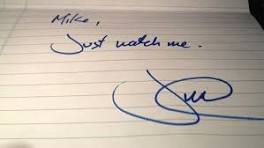 Mike,
Just watch me.